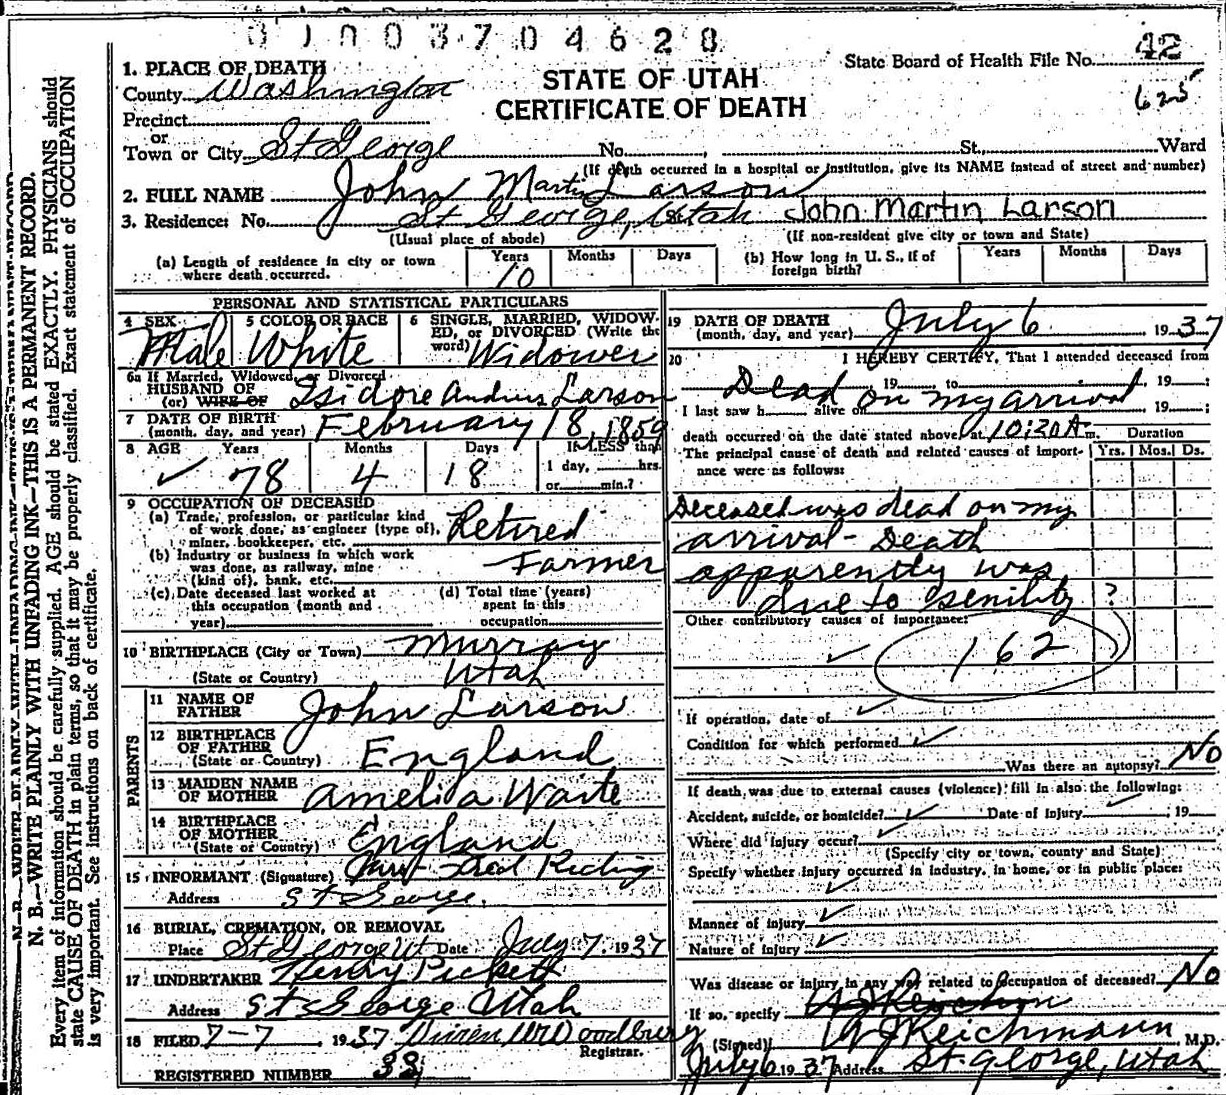 31003704628
State Board of Health File No. 42
625
STATE OF UTAH
CERTIFICATE OF DEATH
1. PLACE OF DEATH
County Washington
Precinct
or
Town or City St George No. , St., Ward
(If death occurred in a hospital or institution, give its NAME instead of street and number)
2. FULL NAME John Martin Larson
3. Residence: No. St George, Utah John Martin Larson
(Usual place of abode) (If non-resident give city or town and State)
(a) Length of residence in city or town where death occurred. Years 10 Months Days (b) How long in U. S., if of foreign birth? Years Months Days
PERSONAL AND STATISTICAL PARTICULARS
4 SEX Male 5 COLOR OR RACE White 6 SINGLE, MARRIED, WIDOWED, or DIVORCED (Write the word) Widower
6a If Married, Widowed, or Divorced
HUSBAND OF
(or) WIFE OF Isidore Andrus Larson
7 DATE OF BIRTH
(month, day, and year) February 18, 1859
8 AGE Years 78 Months 4 Days 18 If LESS than
1 day, hrs.
or min.?
9 OCCUPATION OF DECEASED
(a) Trade, profession, or particular kind
of work done, as engineer (type of),
miner, bookkeeper, etc. Retired
(b) Industry or business in which work
was done, as railway, mine
(kind of), bank, etc. Farmer
(c) Date deceased last worked at
this occupation (month and
year)
(d) Total time (years)
spent in this
occupation
10 BIRTHPLACE (City or Town) Murray
(State or Country) Utah
PARENTS
11 NAME OF
FATHER John Larson
12 BIRTHPLACE
OF FATHER
(State or Country) England
13 MAIDEN NAME
OF MOTHER Amelida Waite
14 BIRTHPLACE
OF MOTHER
(State or Country) England
15 INFORMANT (Signature) Mrs Fred Reding
Address St George.
16 BURIAL, CREMATION, OR REMOVAL
Place St George Ut Date July 7, 1937
17 UNDERTAKER Henry Pickett
Address St George Utah
18 FILED 7-7 1937 Woodbury
Registrar.
REGISTERED NUMBER 38
19 DATE OF DEATH
(month, day, and year) July 6 1937
20 I HEREBY CERTIFY, That I attended deceased from
Dead , 19 , to on my arrival , 19 ;
I last saw h alive on 19 ;
death occurred on the date stated above, at 10:20 A m. Duration
The principal cause of death and related causes of importance were as follows: Yrs. Mos. Ds.
Deceased was dead on my
arrival - Death
apparently was
due to senility ?
Other contributory causes of importance:
162
If operation, date of
Condition for which performed
Was there an autopsy? No
If death was due to external causes (violence) fill in also the following:
Accident, suicide, or homicide? Date of injury , 19
Where did injury occur?
(Specify city or town, county and State)
Specify whether injury occurred in industry, in home, or in public place:
Manner of injury
Nature of injury
Was disease or injury in any way related to occupation of deceased? No
If so, specify
(Signed) A J Reichmann M.D.
July 6 1937 Address St. George, Utah
N. B.—WRITE PLAINLY WITH UNFADING INK—THIS IS A PERMANENT RECORD.
Every item of information should be carefully supplied. AGE should be stated EXACTLY. PHYSICIANS should
state CAUSE OF DEATH in plain terms, so that it may be properly classified. Exact statement of OCCUPATION
is very important. See instructions on back of certificate.